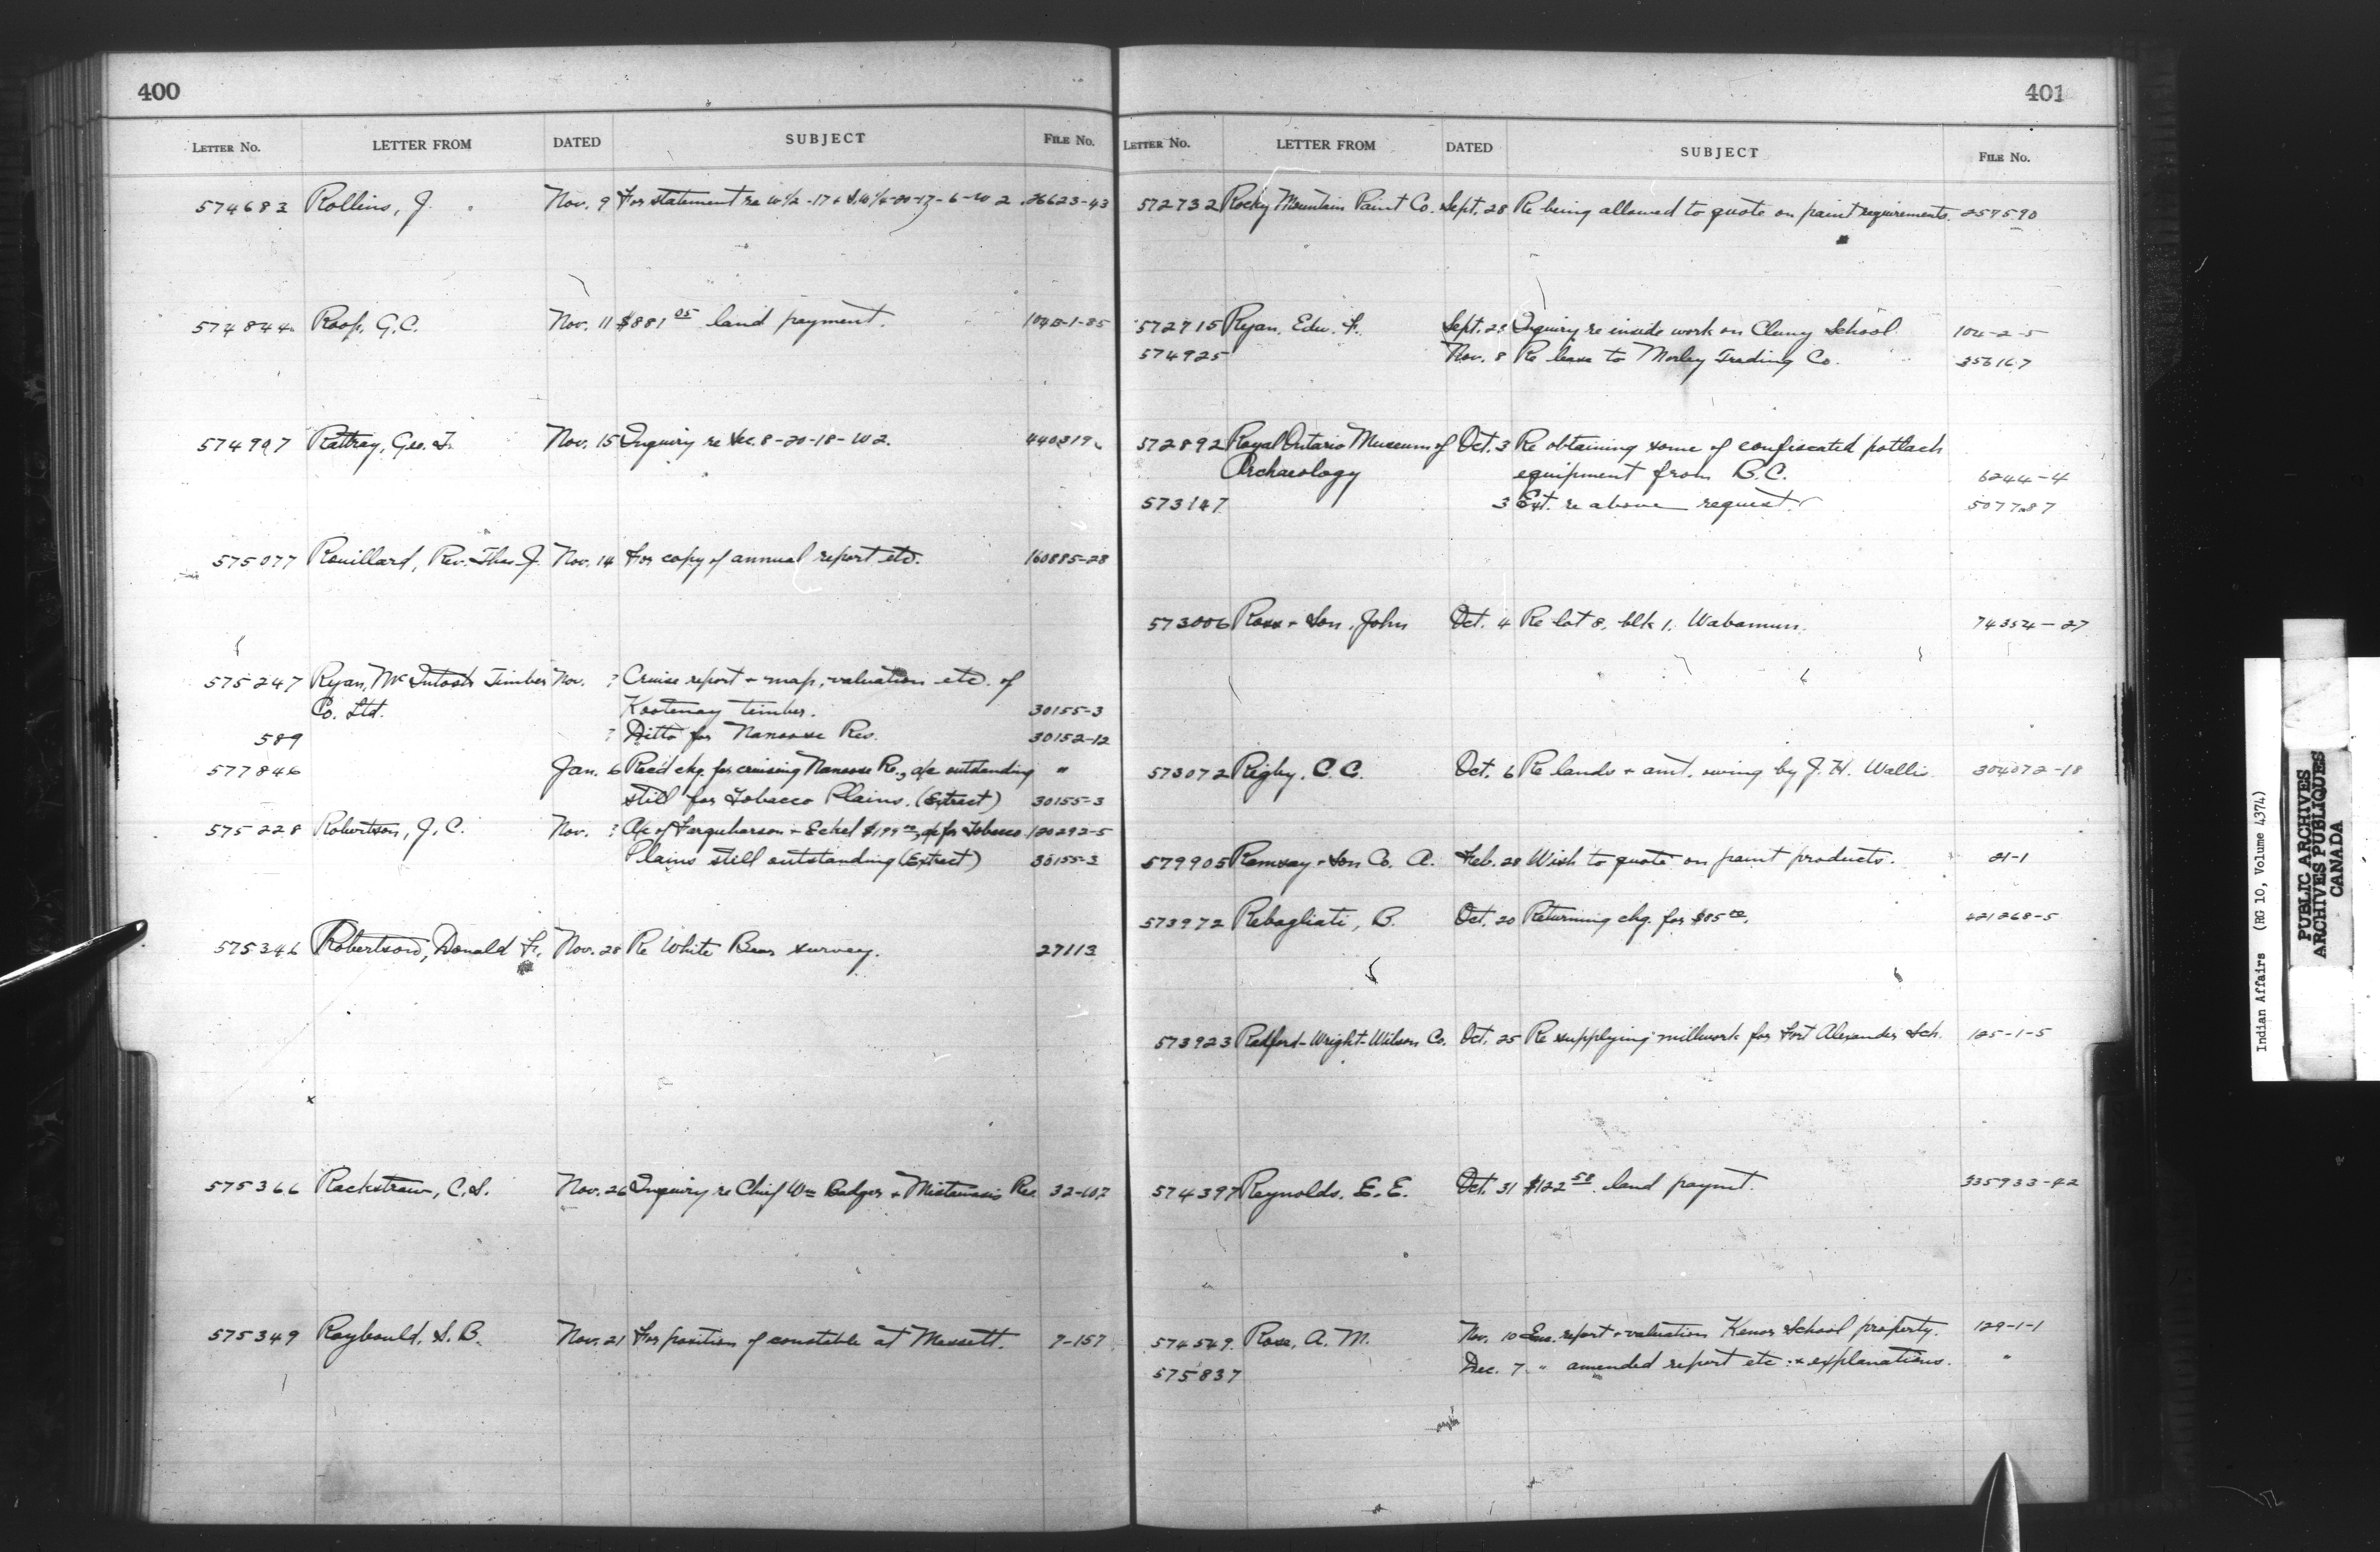 400
LETTER No. LETTER FROM DATED SUBJECT FILE No.
574683 Rollins, J. Nov. 9 For statement re W½-17 & S.W¼-20-17-6-W2 26623-43
574844 Roop, G.C. Nov. 11 $881 05 land payment.
574997 Rattray, Geo. Nov. 15 Inquiry re Sec. 8-20-18-W2. 440319
575077 Rouillard, Rev. Thos. J. Nov. 14 For copy of annual report etc. 160885-28
575247 Ryan, McIntosh Timber Nov. ? Cruise report & map, valuation etc. of
Co. Ltd. Kootenay timber. 30155-3
589 ? Ditto for Nanoose Res. 30152-12
577846 Jan. 6 Rec'd chq. for cruising Nanoose Re., a/c outstanding "
still for Tobacco Plains. (Extract) 30155-3
575228 Robertson, J.C. Nov. ? A/c of Farquharson & Eckel a/c for Tobacco 120292-5
Plains still outstanding (Extract) 30155-3
575346 Robertson, Donald F. Nov. 28 Re White Bear survey. 27113
575366 Rackstraw, C.S. Nov. 26 Inquiry re Chief Wm Badger & Mistawasis Res.
575349 Raybould, S.B. Nov. 21 For position of constable at Massett. 7-157
401
LETTER No. LETTER FROM DATED SUBJECT FILE No.
572732 Rocky Mountain Paint Co. Sept. 28 Re being allowed to quote on paint requirements. 257590
572715 Ryan, Edw. F. Sept. 28 Inquiry re inside work on Cluny School 104-2-5
574925 Nov. 8 Re lease to Morley Trading Co. 356167
572892 Royal Ontario Museum of Oct. 3 Re obtaining some of confiscated potlach
Archaeology equipment from B.C. 6244-4
573147 3 Ext. re above request. 507787
573006 Ross & Son, John Oct. 4 Re lot 8, blk 1, Wabamun. 74354-27
573072 Rigby, C.C. Oct. 6 Re lands & amt. owing by J.H. Wallis 304072-18
579905 Ramsay & Son Co. A. Feb. 28 Wish to quote on paint products. 21-1
573972 Rebagliati, B. Oct. 20 Returning chq. for $85 00. 421268-5
573923 Radford-Wright-Wilson Co. Oct. 25 Re supplying millwork for Fort Alexander Sch. 125-1-5
574397 Reynolds, E.E. Oct. 31 $122 58 land paymt. 335933-42
574549 Ross, A.M. Nov. 10 Enc. report & valuation Kenora School property. 129-1-1
575837 Dec. 7 " amended report etc. & explanations. "
Indian Affairs (RG 10, Volume 4374)
PUBLIC ARCHIVES
ARCHIVES PUBLIQUES
CANADA